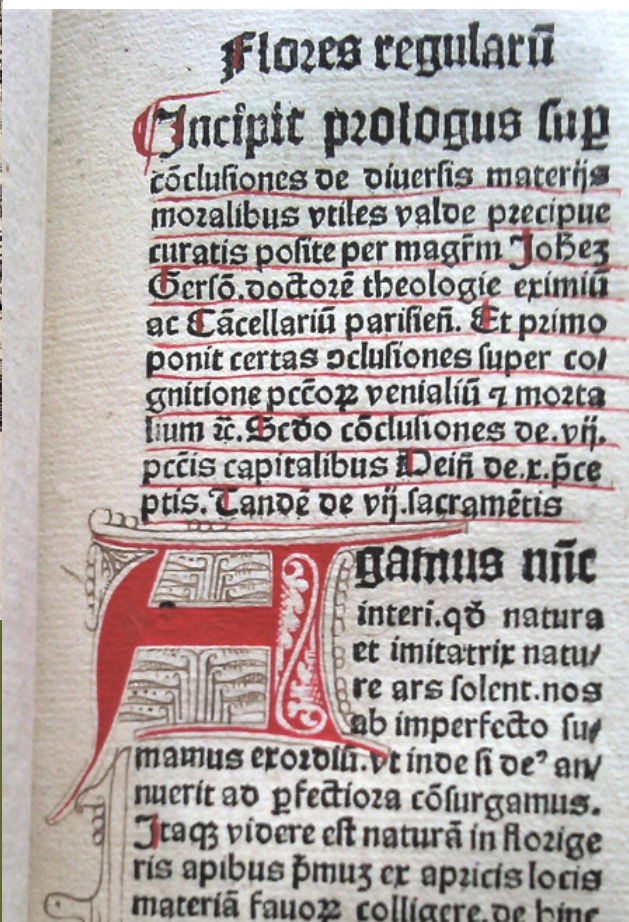 Flores regularū
Incipit prologus suꝑ
cōclusiones de diuersis materijs
moralibus vtiles valde precipue
curatis posite per magr̄m Joħeꝫ
Gersō.doctorē theologie eximiū
ac Cācellariū parisieñ. Et primo
ponit certas ꝯclusiones super co/
gnitione pctōꝝ venialiū ⁊ morta
lium ⁊c̄. Scdo cōclusiones de.vij.
pctīs capitalibus Deiñ de.x.p̄ce
ptis. Tandē de vij.sacramētis
Agamus nūc
interi.qđ natura
et imitatrix natu/
re ars solent.nos
ab imperfecto su/
mamus exordiū.vt inde si deꝰ an/
nuerit ad ꝑfectiora cōsurgamus.
Itaqꝫ videre est naturā in florige
ris apibus p̄muꝫ ex apricis locis
materiā fauoꝝ colligere.de hinc